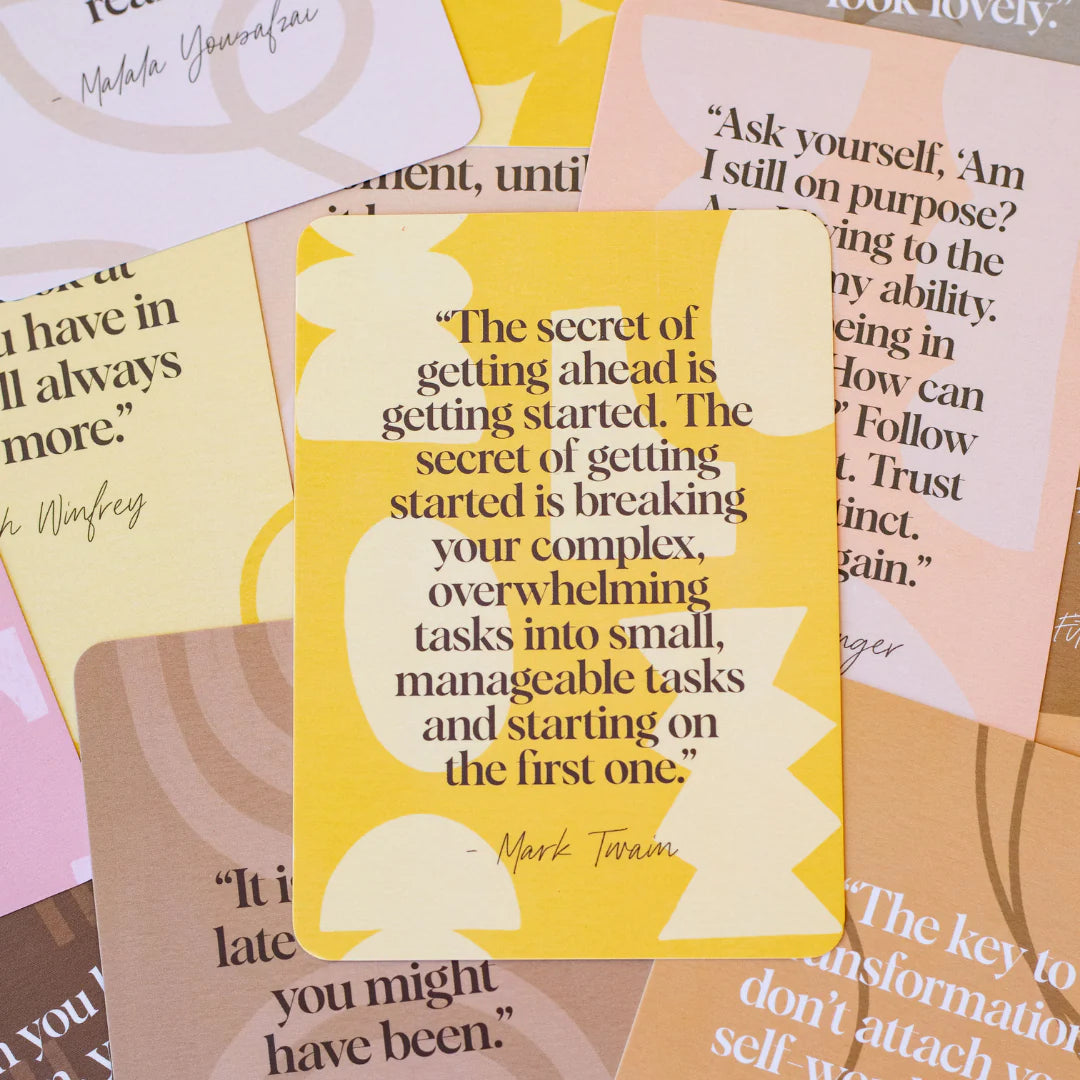 - Malala Yousafzai
look lovely.”
ment, until
“Ask yourself, ‘Am
I still on purpose?
ving to the
my ability.
eing in
How can
Follow
t. Trust
tinct.
gain.”
nger
look at
u have in
ll always
more.”
h Winfrey
“The secret of
getting ahead is
getting started. The
secret of getting
started is breaking
your complex,
overwhelming
tasks into small,
manageable tasks
and starting on
the first one.”
- Mark Twain
“It is
late
you might
have been.”
“The key to
transformation
don’t attach
self-wor
n you